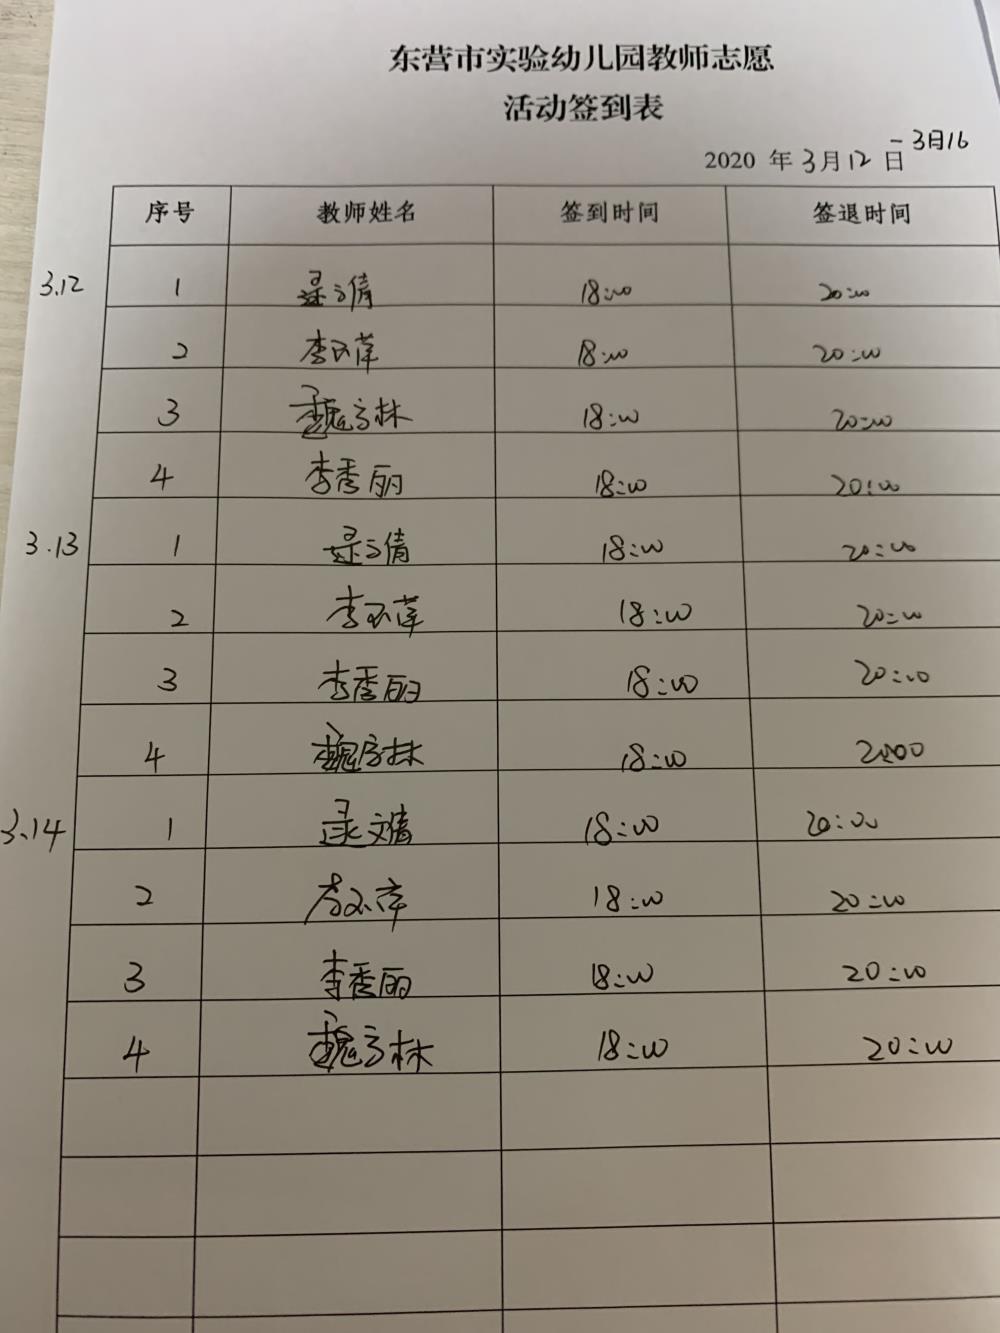 东营市实验幼儿园教师志愿
活动签到表
2020 年 3月12日 - 3月16
序号 教师姓名 签到时间 签退时间
3.12 1 18:00 20:00
2 李 萍 18:00 20:00
3 魏方林 18:00 20:00
4 李秀丽 18:00 20:00
3.13 1 18:00 20:00
2 李 萍 18:00 20:00
3 李秀丽 18:00 20:00
4 魏方林 18:00 20:00
3.14 1 逯文倩 18:00 20:00
2 18:00 20:00
3 李秀丽 18:00 20:00
4 魏方林 18:00 20:00